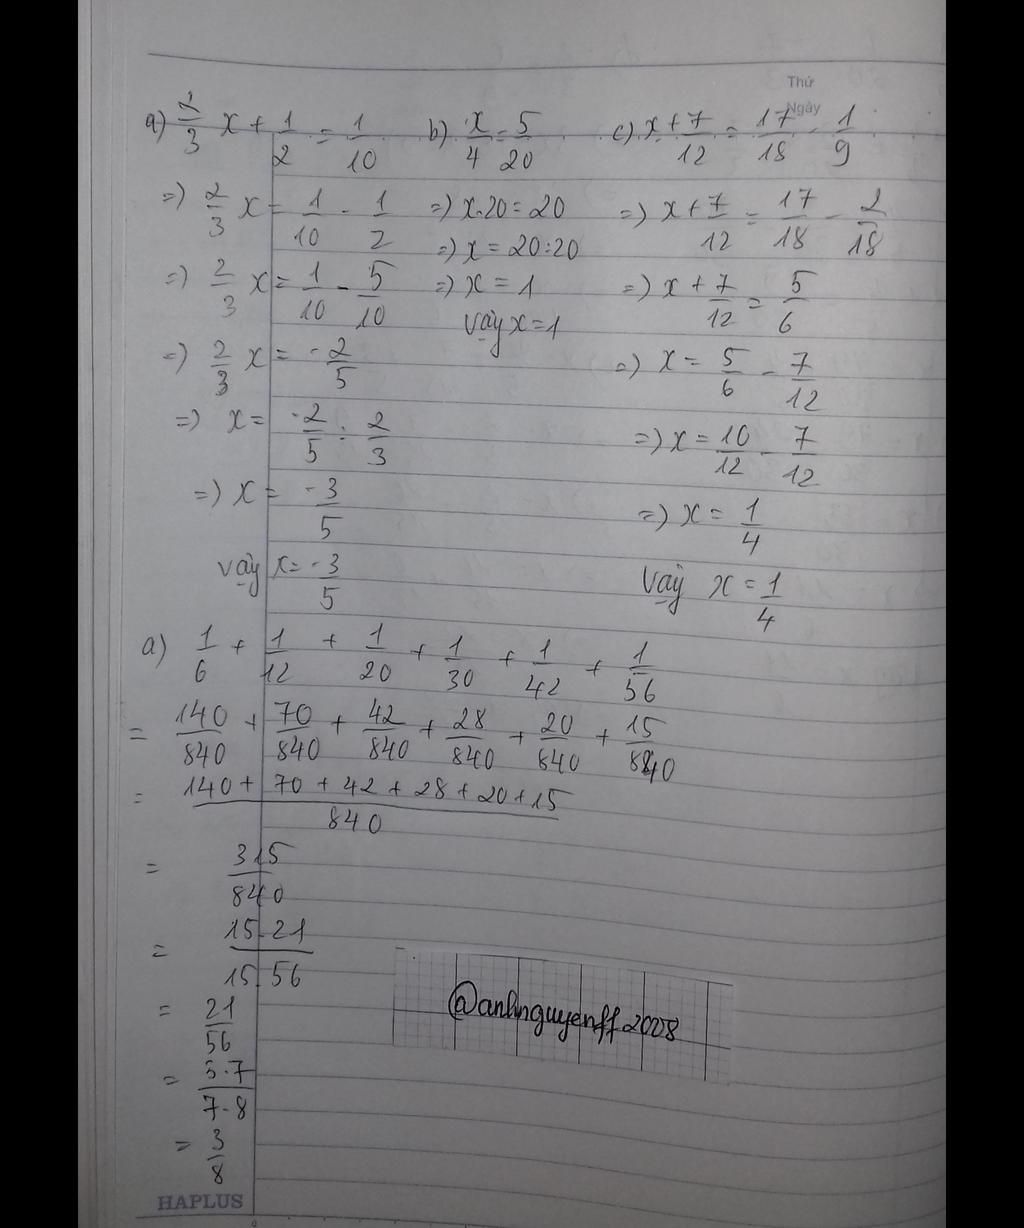 Thứ
Ngày
a) 2/3 x + 1/2 = 1/10
=) 2/3 x = 1/10 - 1/2
=) 2/3 x = 1/10 - 5/10
=) 2/3 x = -2/5
=) x = -2/5 : 2/3
=) x = -3/5
vậy x = -3/5
b) x/4 = 5/20
=) x.20 = 20
=) x = 20:20
=) x = 1
Vậy x = 1
c) x + 7/12 = 17/18 - 1/9
=) x + 7/12 = 17/18 - 2/18
=) x + 7/12 = 5/6
=) x = 5/6 - 7/12
=) x = 10/12 - 7/12
=) x = 1/4
Vậy x = 1/4
a) 1/6 + 1/12 + 1/20 + 1/30 + 1/42 + 1/56
= 140/840 + 70/840 + 42/840 + 28/840 + 20/840 + 15/840
= (140 + 70 + 42 + 28 + 20 + 15)/840
= 315/840
= 15.21/15.56
= 21/56
= 3.7/7.8
= 3/8
@anhnguyenff2008
HAPLUS